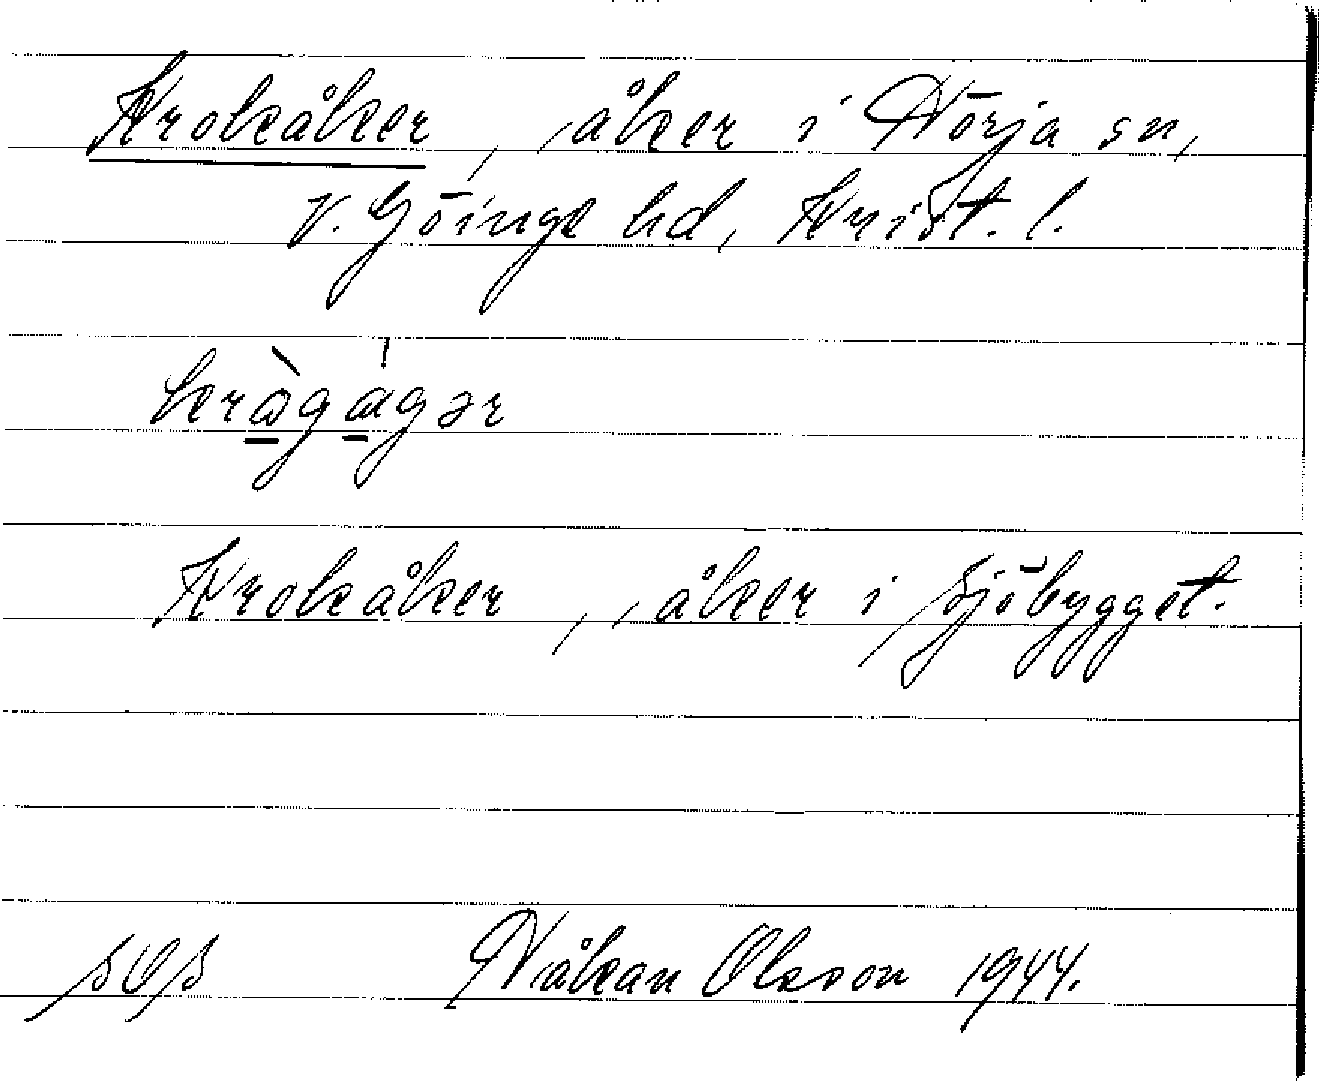 Krokåker, , åker i Nörja sn,
V. Göinge hd, Krist. l.
Krokåker, , åker i Sjöbygget.
Håkan Olsson 1944.